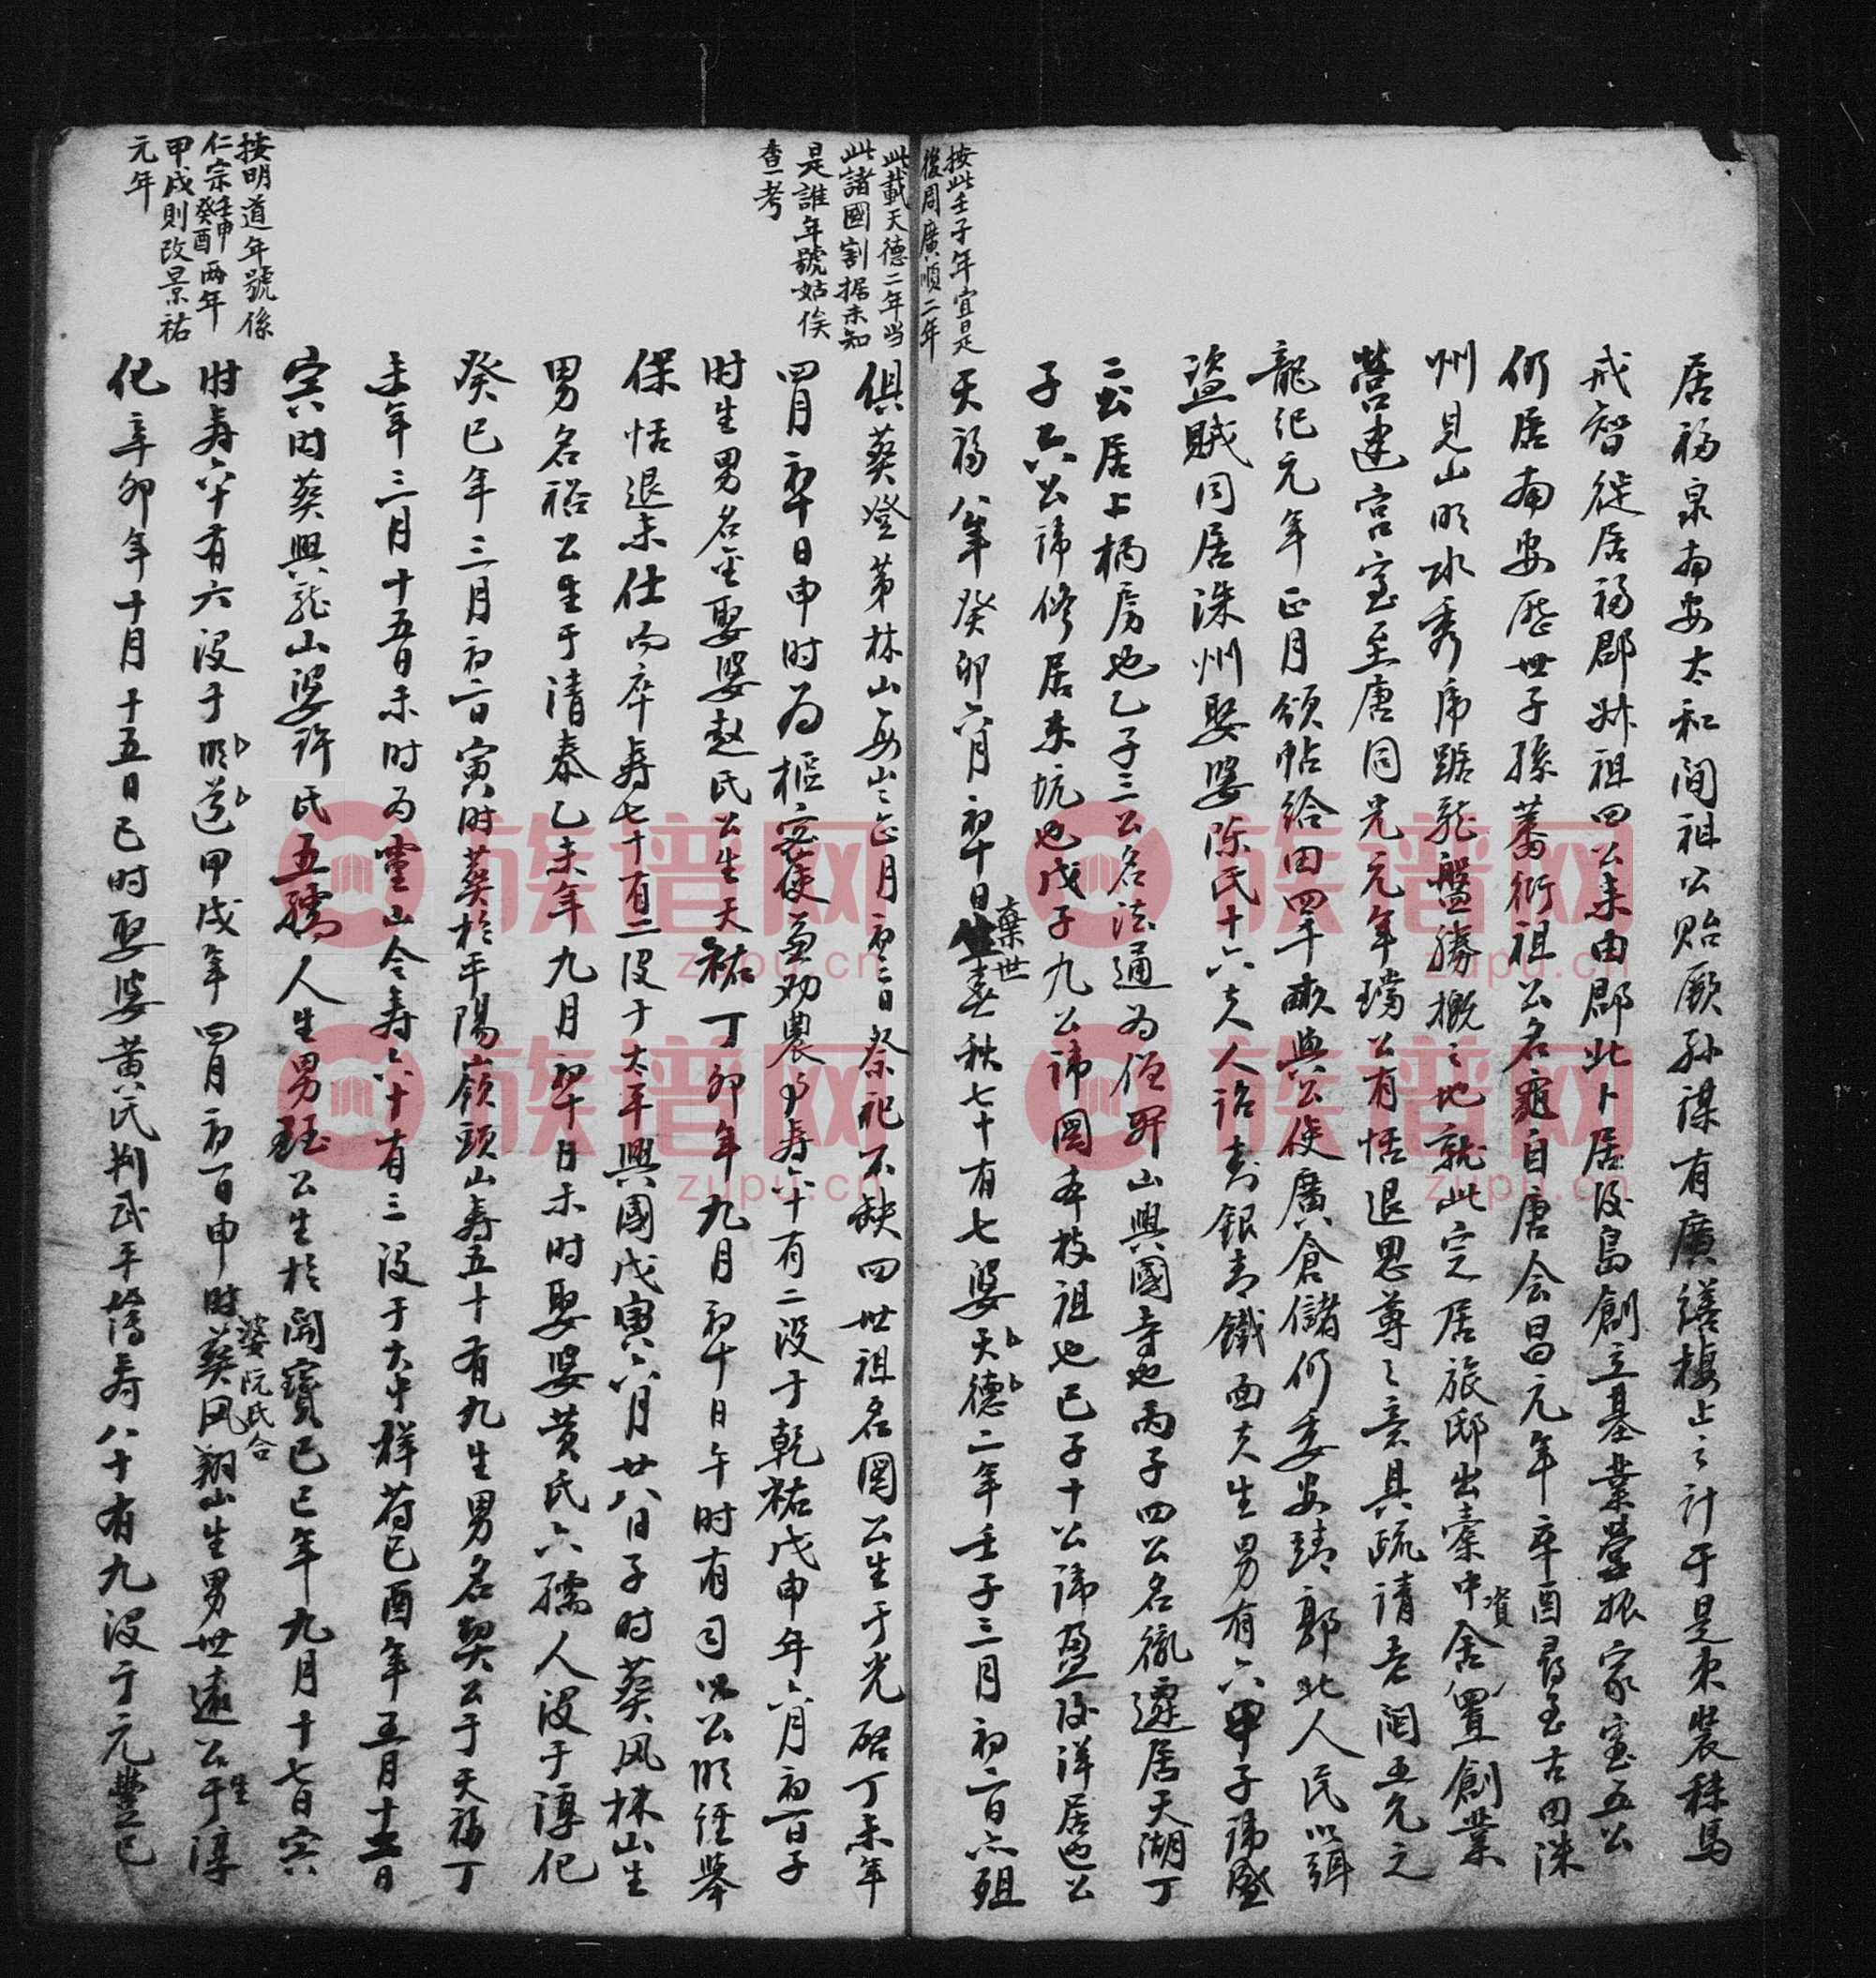 居福泉南安太和間祖公貽厥孫謀有廣繕棲止之計于是束裝秣馬
戒智徙居福郡姝祖四公未由郡北卜居後島創立基業營振家室五公
仍居南安歷世子孫蕃衍祖公名竈自唐会昌元年辛酉尋至古田洙
州見山明水秀虎踞龍盤勝概之地就此定居旅邸出橐中資舍置創業
營建宮室至唐同光元年璹公有恬退思尊之意具疏請老閩王允之
龍紀元年正月頒帖給田四千畝與公使廣倉儲仍委安靖郭北人民以弭
盜賊同居洙州娶婆陳氏十六夫人誥封銀青鐵面夫生男有六甲子諱盛
二公居上柄房也乙子三公名法通為僧畀山興國寺也丙子四公名徹遷居天湖丁
子六公諱修居東坑也戊子九公諱圐本枝祖也已子十公諱盈後洋居也公
天福八年癸卯六月初十日棄世春秋七十有七婆天德二年壬子三月初二日亦殂
按此壬子年宜是
後周廣順二年
此載天德二年当
此諸國割据未知
是誰年號姑俟
查考
俱葬燈第林山每出正月初二日祭祀不缺四世祖名圐公生于光啓丁未年
四月初十日申时为樞密使兼劝農事寿六十有二没于乾祐戊申年六月初一日子
时生男名聖娶婆趙氏公生天祐丁卯年九月初十日午时有司以公明經舉
保恬退未仕而卒寿七十有二没于太平興國戊寅六月廿八日子时葬凤林山生
男名裕公生于清泰乙未年九月初十日未时娶婆黄氏六孺人没于淳化
癸巳年三月初二日寅时葬於平陽嶺頭山寿五十有九生男名契公于天福丁
未年三月十五日未时为霍山令寿六十有三没于大中祥符己酉年五月十五日
宾时葬興龍山婆許氏五孺人生男珏公生於開寶已巳年九月十七日宾
时寿六十有六没于明道甲戌年四月初一日申时葬凤翔山婆阮氏合生男世遠公生于淳
化辛卯年十月十五日巳时娶婆黄氏判武平簿寿八十有九没于元豐已
按明道年號係
仁宗壬申癸酉兩年
甲戌則改景祐
元年